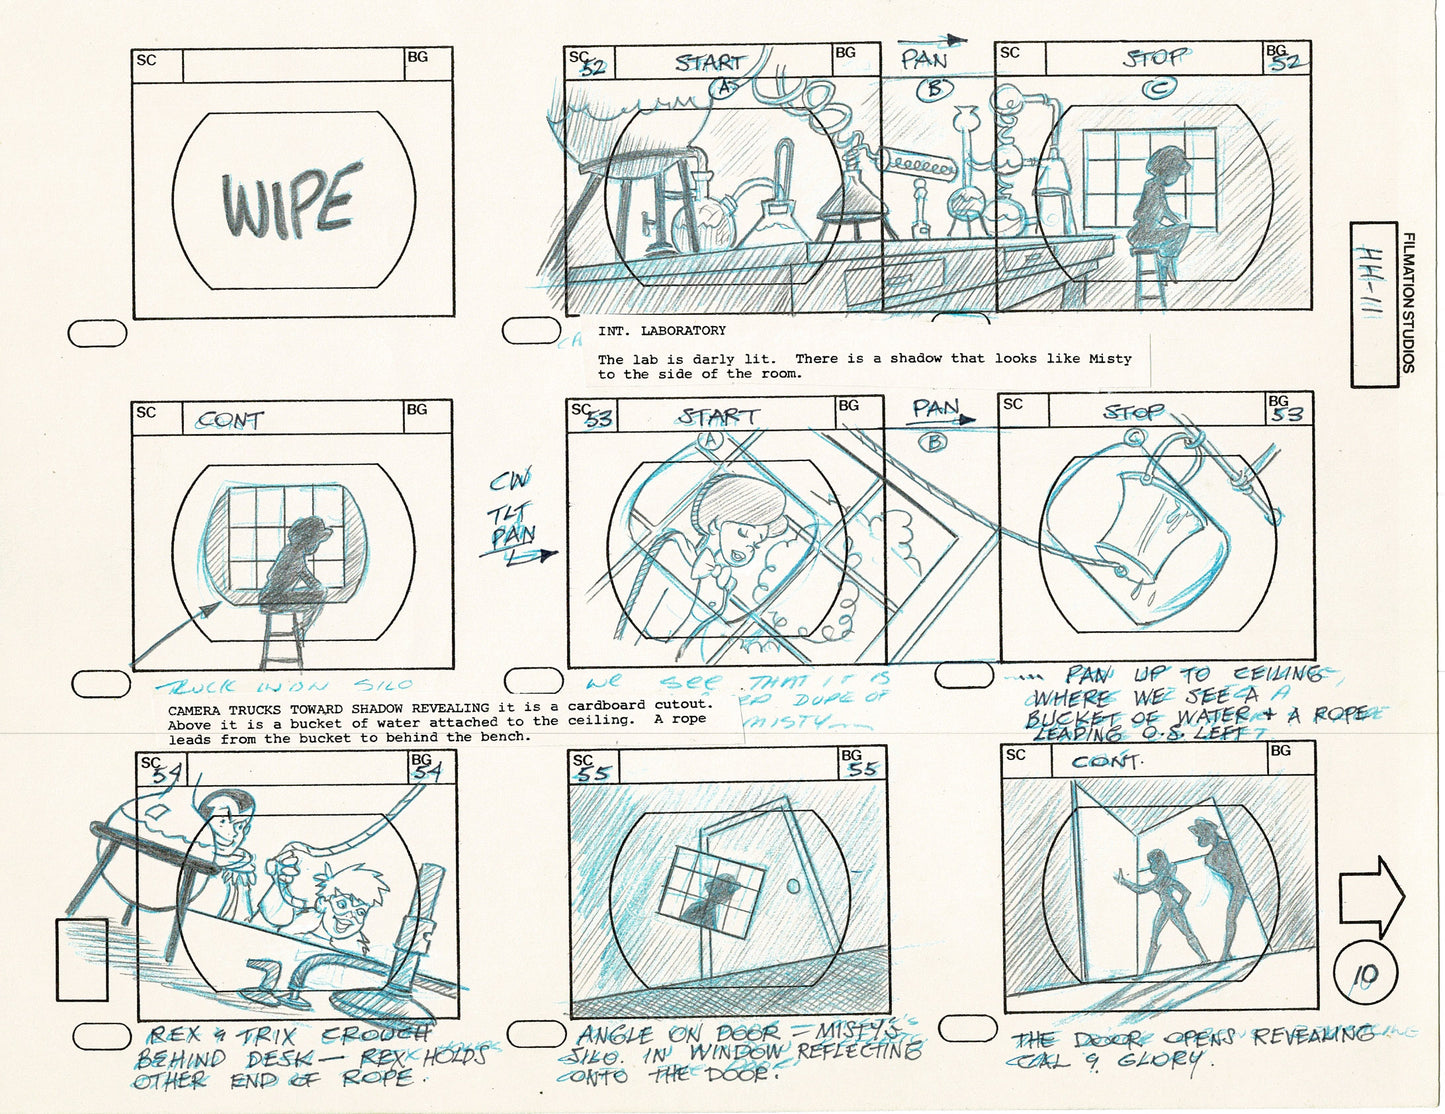 SC
BG
WIPE
SC 52
START
BG
PAN
SC
STOP
BG 52
A
B
C
INT. LABORATORY
The lab is darly lit. There is a shadow that looks like Misty
to the side of the room.
FILMATION STUDIOS
HH-111
SC
CONT
BG
CW
TLT
PAN
SC 53
START
BG
PAN
SC
STOP
BG 53
A
B
C
TRUCK IN ON SILO
CAMERA TRUCKS TOWARD SHADOW REVEALING it is a cardboard cutout.
Above it is a bucket of water attached to the ceiling. A rope
leads from the bucket to behind the bench.
WE SEE THAT IT IS
DUPE OF
MISTY
.... PAN UP TO CEILING
WHERE WE SEE A
BUCKET OF WATER & A ROPE
LEADING O.S. LEFT
SC 54
BG 54
REX & TRIX CROUCH
BEHIND DESK — REX HOLDS
OTHER END OF ROPE.
SC 55
BG 55
ANGLE ON DOOR — MISTY'S
SILO. IN WINDOW REFLECTING
ONTO THE DOOR.
SC
CONT.
BG
THE DOOR OPENS REVEALING
CAL & GLORY.
10